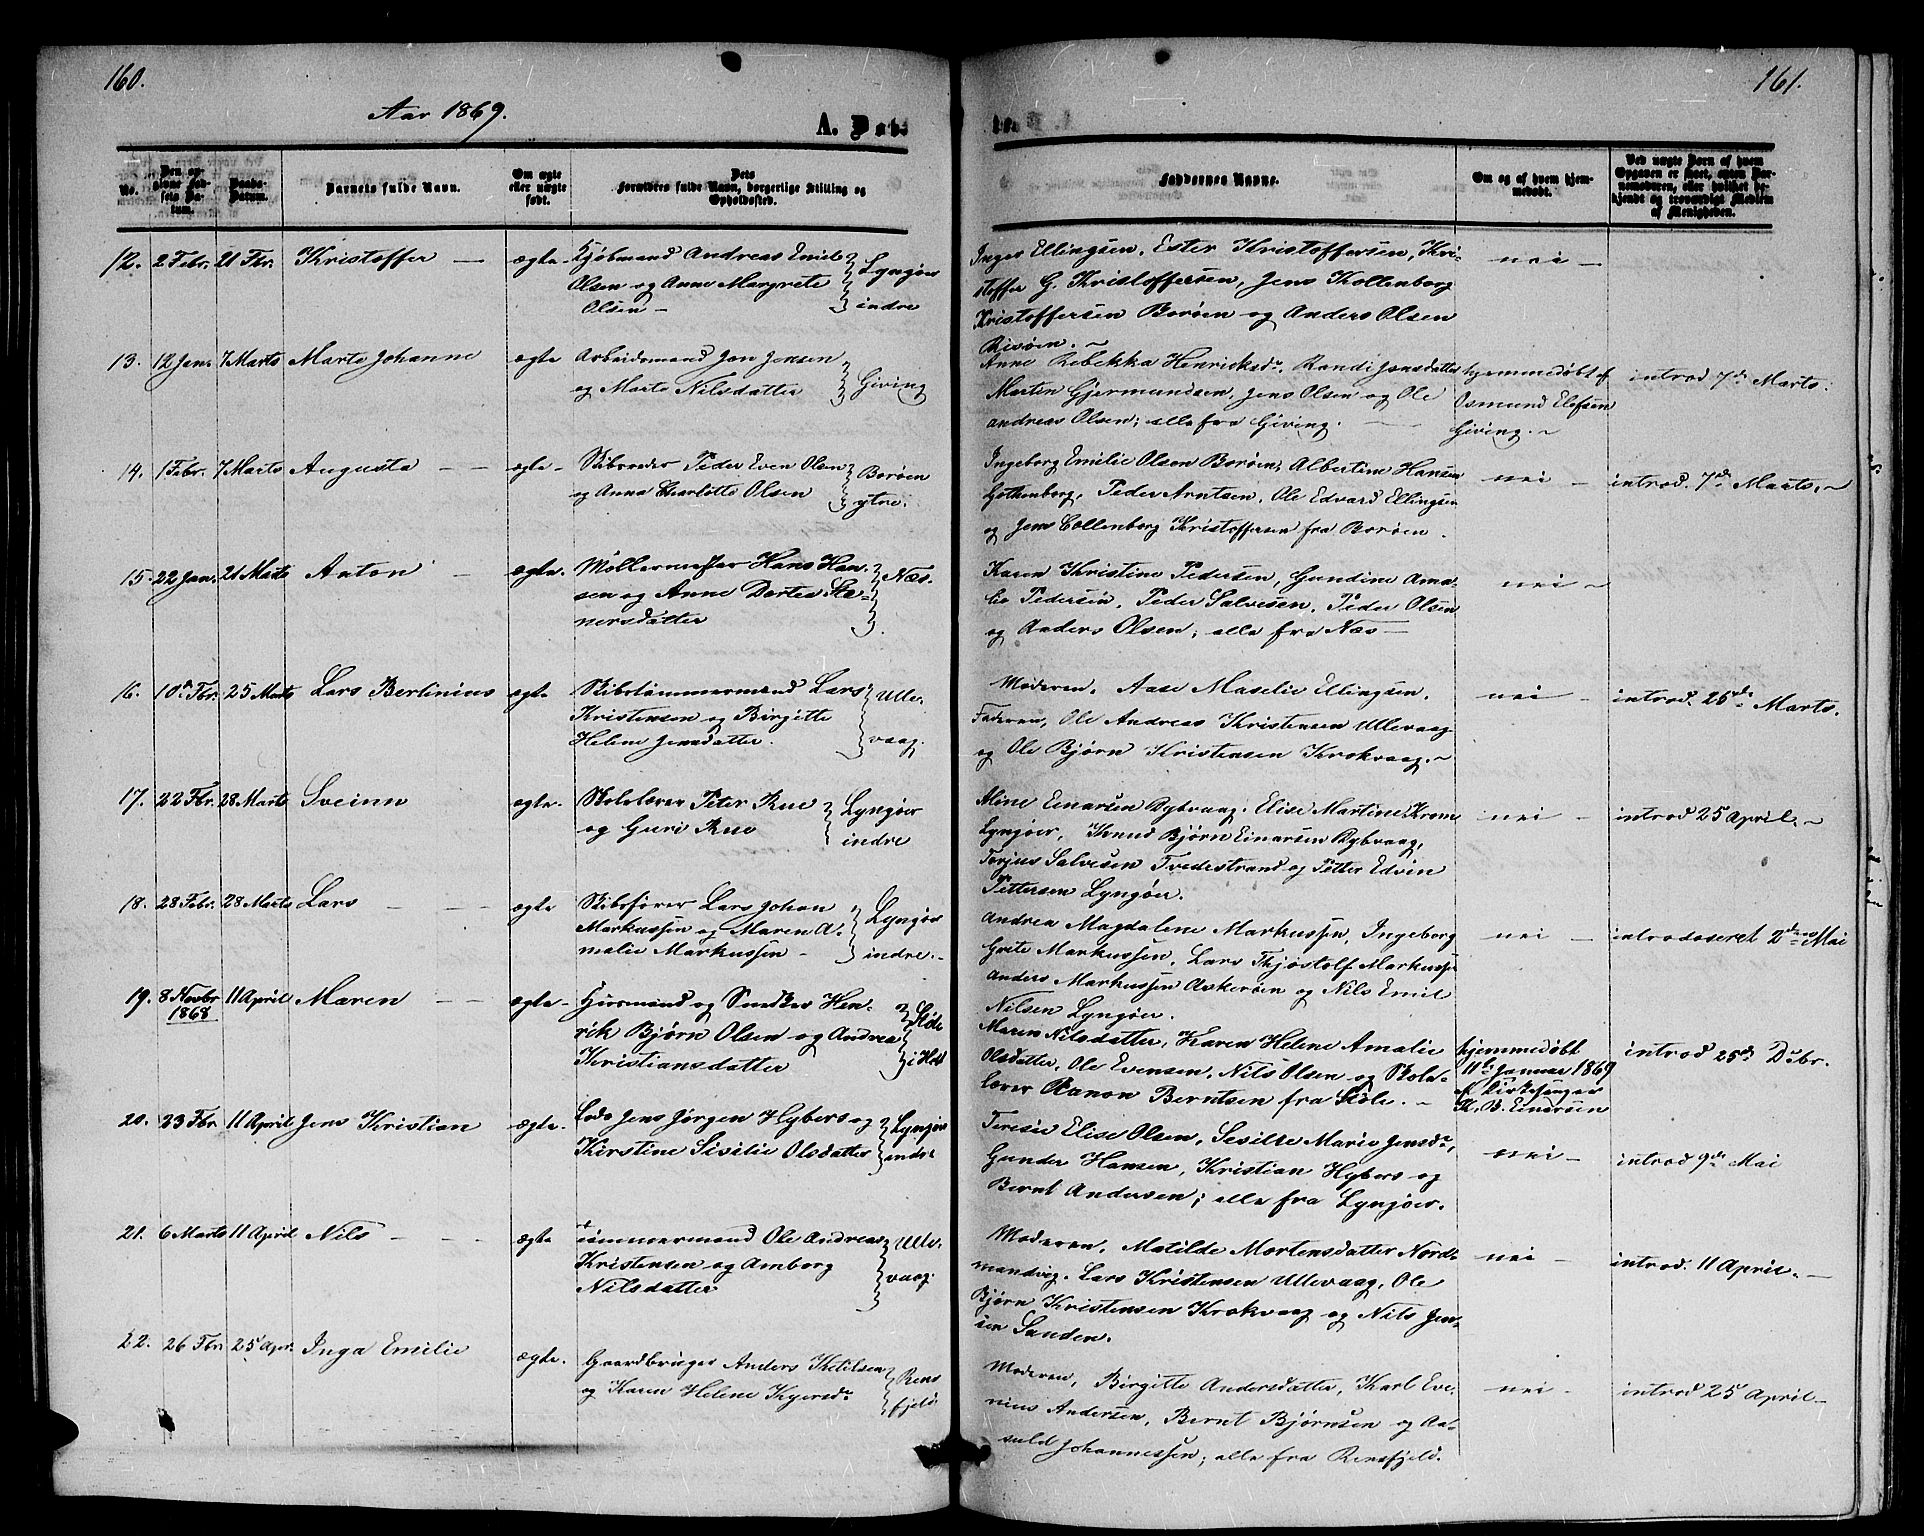 160.
Aar 1869.
A. Døb-
No.
Den op-
givne Fød-
sels Da-
tum.
Daabs-
Datum.
Barnets fulde Navn.
Om ægte
eller uægte
født.
Dets
Forældres fulde Navn, borgerlige Stilling og
Opholdssted.
12. 2 Febr. 21 Fbr. Kristoffer — ægte Kjøbmand Andreas Emil
Olsen og Anne Margrete
Olsen —
Lyngøer
indre
13. 12 Jan. 7 Marts Marte Johanne ægte Arbeidsmand Jon Jensen
og Marte Nilsdatter
Giving
14. 1 Febr. 7 Marts Augusta — — ægte — Skibsreder Peder Even Olsen
og Anna Charlotte Olsen
Borøen
ytre.
15. 22 Jan. 21 Marts Anton — ægte. Møllermester Hans Han-
sen og Anne Dortea Ste-
nersdatter
Næs
16. 10de Fbr. 25 Marts Lars Berlinius ægte Skibstømmermand Lars
Kristensen og Birgitte
Helene Jensdatter.
Ulle-
vaag.
17. 22 Fbr. 28 Marts Sveinn ægte. Skolelærer Peter Rue
og Guri Rue
Lyngøer
indre
18. 28 Febr. 28 Marts Lars — — ægte Skibsfører Lars Johan
Markussen og Maren A-
malie Markussen —
Lyngøer
indre. —
19. 8 Novbr 11 April Maren — — ægte — Huusmand og Snedker Hen-
1868
rik Bjørn Olsen og Andrea
Kristiansdatter
Støle
i Holt
20. 23 Fbr 11 April Jens Kristian ægte. Lods Jens Jørgen Hybers og
Kirstine Sisilie Olsdatter
Lyngøer
indre
21. 6 Marts 11 April Nils — — — ægte Tømmermand Ole Andreas
Kristensen og Amborg
Nilsdatter
Ulle-
vaag.
22. 26 Fbr 25 Apr. Inga Emilie ægte. Gaardbruger Anders Ketilsen
og Karen Helene Kgersdr
Rens
fjeld
161.
Faddernes Navne.
Om og af hvem hjem-
medøbt.
Ved uægte Børn af hvem
Opgaven er skeet, enten Bar-
nemoderen, eller hvilket be-
kjendt og troværdigt Medlem
af Menigheden.
Inger Ellingsen, Ester Kristoffersen, Kri-
stoffer G. Kristoffersen, Jens Kollenborg
Kristoffersen Borøen og Anders Olsen
Risøen. —
nei —
Anne Rebekka Henriksdr, Randi Jensdatter
Martin Gjermundsen, Jens Olsen og Ole
Andreas Olsen; alle fra Giving. —
hjemmedøbt af
Osmund Elefsen
Giving. —
introd 7de Marts.
Ingeborg Emilie Olsen Borøen, Albertine Hansen
Gothenborg, Peder Arntsen, Ole Edvard Ellingsen
og Jens Collenborg Kristoffersen fra Borøen.
nei —
introd. 7de Marts. —
Karen Kristine Pedersen, Gundine Ama-
lie Pedersen, Peder Salvesen, Peder Olsen
og Anders Olsen; alle fra Næs —
nei —
Moderen, Aase Maselie Ellingsen,
Faderen, Ole Andreas Kristensen Ullevaag
og Ole Bjørn Kristensen Krokvaag. —
nei —
introd. 26de Marts.
Aline Einarsen Dybvaag, Elise Martine Krom
Lyngøer, Knud Bjørn Einarsen Dybvaag,
Terjus Salvesen Tvedestrand og Petter Edvin
Pettersen Lyngøer.
nei —
introd 25 April. —
Andrea Magdalene Markussen, Ingeborg
Grete Markussen, Lars Thjøstolf Markussen
Anders Markussen Askerøen og Nils Emil
Nilsen Lyngøer.
nei —
introduseret 2den Mai
Maren Nilsdatter, Karen Helene Amalie
Olsdatter, Ole Evensen, Nils Olsen og Skole-
lærer Aanon Berntsen fra Støle. —
hjemmedøbt
11te Januar 1869
af Kirkesanger
K. B. Einarsen
introd 25de Dcbr.
Teresie Elise Olsen, Sesilie Marie Jensdr,
Gunder Hansen, Kristian Hybers og
Bernt Andersen; alle fra Lyngøer.
nei —
introd 9de Mai
Moderen, Matilde Mortensdatter Nord-
mandvig, Lars Kristensen Ullevaag, Ole
Bjørn Kristensen Krokvaag og Nils Jen-
sen Sanden.
nei —
introd. 11 April. —
Moderen, Birgitte Andersdatter, Karl Eve-
nius Andersen, Bernt Bjørnsen og Aa-
suld Johannessen; alle fra Rensfjeld.
nei —
introd 25 April —